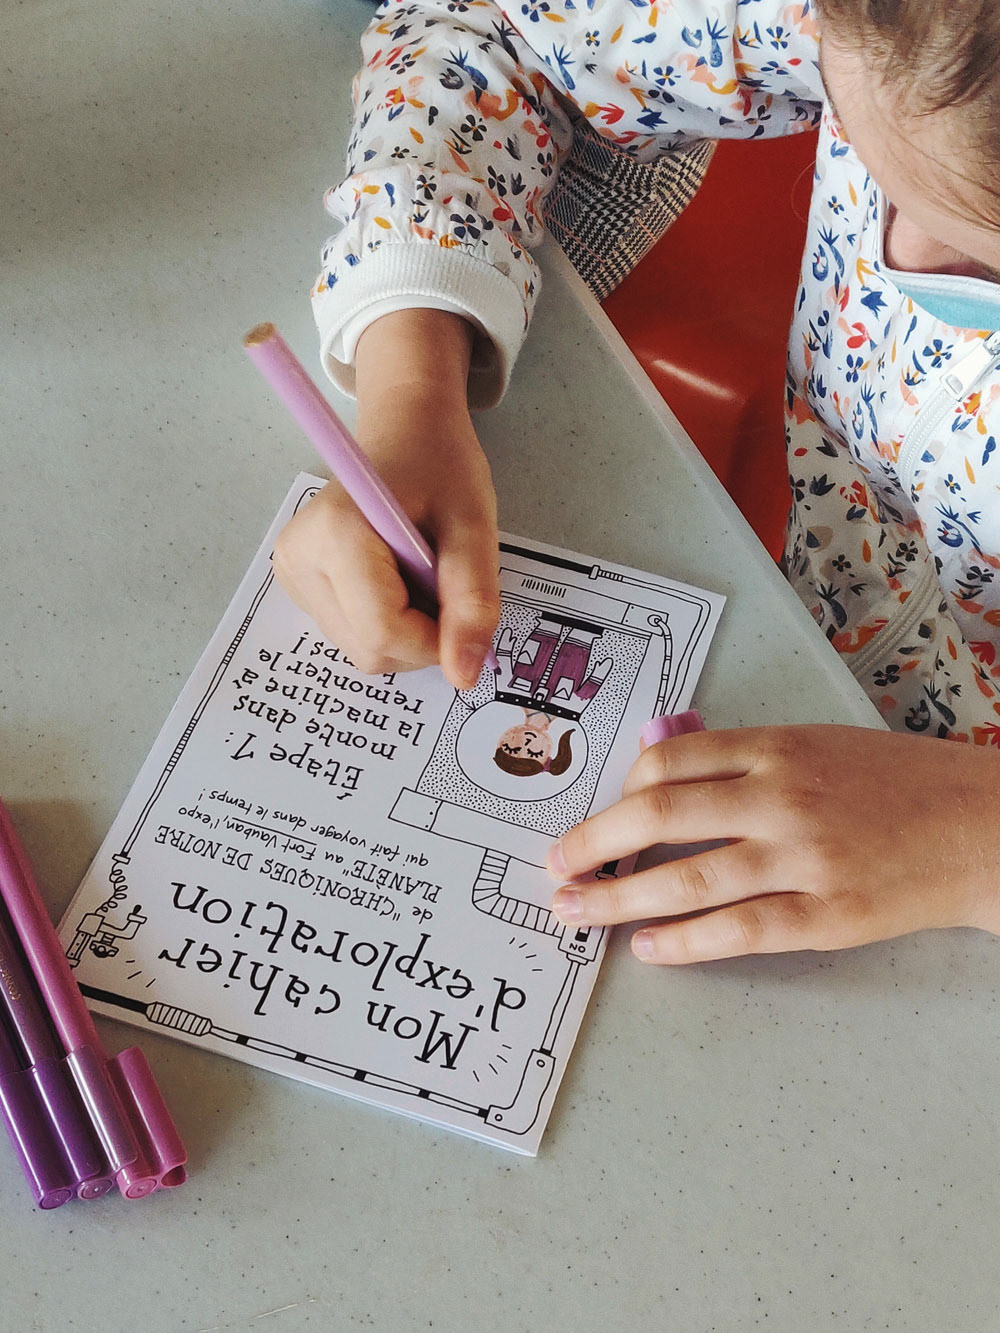 Mon cahier
d'exploration
de "CHRONIQUES DE NOTRE
PLANÈTE" au Fort Vauban, l'expo
qui fait voyager dans le temps !
Étape 1 :
monte dans
la machine à
remonter le
ON